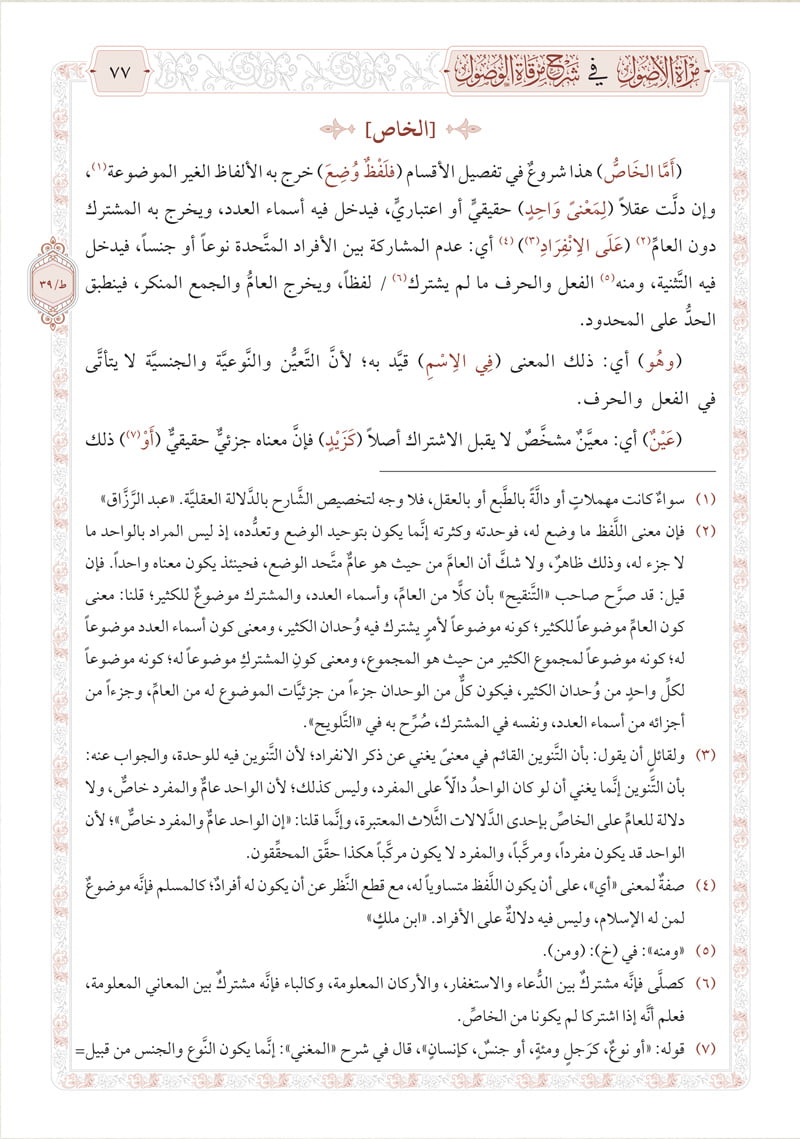 مرآة الأصول في شرح مرقاة الوصول
٧٧
[الخاص]
(أَمَّا الخَاصُّ) هذا شروعٌ في تفصيل الأقسام (فلَفْظٌ وُضِعَ) خرج به الألفاظ الغير الموضوعة(١)،
وإن دلَّت عقلاً (لِمَعْنىً وَاحِدٍ) حقيقيٍّ أو اعتباريٍّ، فيدخل فيه أسماء العدد، ويخرج به المشترك
دون العامِّ(٢) (عَلَى الِانْفِرَادِ(٣)) (٤) أي: عدم المشاركة بين الأفراد المتَّحدة نوعاً أو جنساً، فيدخل
فيه التَّثنية، ومنه(٥) الفعل والحرف ما لم يشترك(٦) / لفظاً، ويخرج العامُّ والجمع المنكر، فينطبق
ط/٣٩
الحدُّ على المحدود.
(وهُو) أي: ذلك المعنى (فِي الِاسْمِ) قيَّد به؛ لأنَّ التَّعيُّن والنَّوعيَّة والجنسيَّة لا يتأتَّى
في الفعل والحرف.
(عَيْنٌ) أي: معيَّنٌ مشخَّصٌ لا يقبل الاشتراك أصلاً (كَزَيْدٍ) فإنَّ معناه جزئيٌّ حقيقيٌّ (أَوْ(٧)) ذلك
(١) سواءٌ كانت مهملاتٍ أو دالَّةً بالطَّبع أو بالعقل، فلا وجه لتخصيص الشَّارح بالدَّلالة العقليَّة. «عبد الرَّزَّاق»
(٢) فإن معنى اللَّفظ ما وضع له، فوحدته وكثرته إنَّما يكون بتوحيد الوضع وتعدُّده، إذ ليس المراد بالواحد ما
لا جزء له، وذلك ظاهرٌ، ولا شكَّ أن العامَّ من حيث هو عامٌّ متَّحد الوضع، فحينئذ يكون معناه واحداً. فإن
قيل: قد صرَّح صاحب «التَّنقيح» بأن كلًّا من العامِّ، وأسماء العدد، والمشترك موضوعٌ للكثير؛ قلنا: معنى
كون العامِّ موضوعاً للكثير؛ كونه موضوعاً لأمرٍ يشترك فيه وُحدان الكثير، ومعنى كون أسماء العدد موضوعاً
له؛ كونه موضوعاً لمجموع الكثير من حيث هو المجموع، ومعنى كونِ المشتركِ موضوعاً له؛ كونه موضوعاً
لكلِّ واحدٍ من وُحدان الكثير، فيكون كلٌّ من الوحدان جزءاً من جزئيَّات الموضوع له من العامِّ، وجزءاً من
أجزائه من أسماء العدد، ونفسه في المشترك، صُرِّح به في «التَّلويح».
(٣) ولقائلٍ أن يقول: بأن التَّنوين القائم في معنىً يغني عن ذكر الانفراد؛ لأن التَّنوين فيه للوحدة، والجواب عنه:
بأن التَّنوين إنَّما يغني أن لو كان الواحدُ دالّاً على المفرد، وليس كذلك؛ لأن الواحد عامٌّ والمفرد خاصٌّ، ولا
دلالة للعامِّ على الخاصِّ بإحدى الدَّلالات الثَّلاث المعتبرة، وإنَّما قلنا: «إن الواحد عامٌّ والمفرد خاصٌّ»؛ لأن
الواحد قد يكون مفرداً، ومركَّباً، والمفرد لا يكون مركَّباً هكذا حقَّق المحقِّقون.
(٤) صفةٌ لمعنى «أي»، على أن يكون اللَّفظ متساوياً له، مع قطع النَّظر عن أن يكون له أفرادٌ؛ كالمسلم فإنَّه موضوعٌ
لمن له الإسلام، وليس فيه دلالةٌ على الأفراد. «ابن ملكٍ»
(٥) «ومنه»: في (خ): (ومن).
(٦) كصلَّى فإنَّه مشتركٌ بين الدُّعاء والاستغفار، والأركان المعلومة، وكالباء فإنَّه مشتركٌ بين المعاني المعلومة،
فعلم أنَّه إذا اشتركا لم يكونا من الخاصِّ.
(٧) قوله: «أو نوعٌ، كرَجلٍ ومئةٍ، أو جنسٌ، كإنسانٍ»، قال في شرح «المغني»: إنَّما يكون النَّوع والجنس من قبيل=